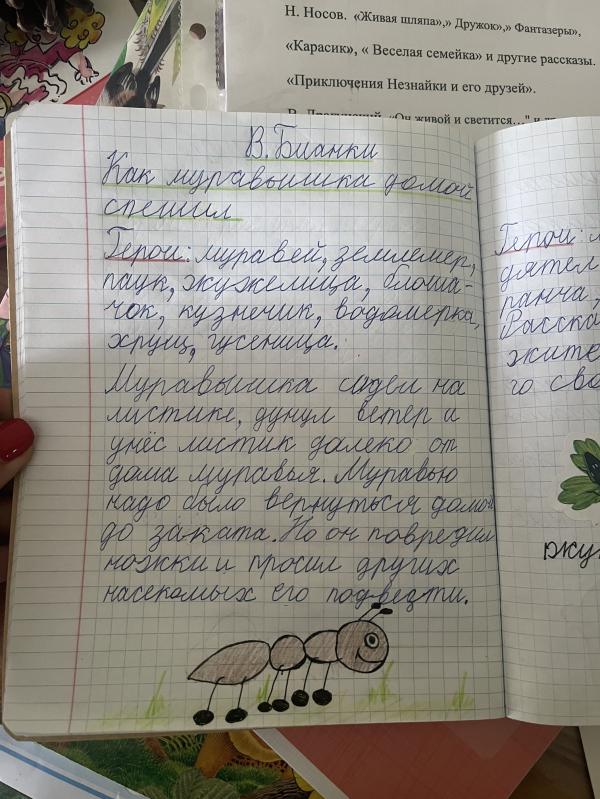 Н. Носов. «Живая шляпа»,» Дружок»,» Фантазеры»,
«Карасик», « Веселая семейка» и другие рассказы.
«Приключения Незнайки и его друзей».
В. Драгунский. «Он живой и светится..." и
В. Бианки
Как муравьишка домой
спешил
Герои: муравей, землемер,
паук, жужелица, блоша-
чок, кузнечик, водомерка,
хрущ, гусеница.
Муравьишка сидел на
листике, дунул ветер и
унёс листик далеко от
дома муравья. Муравью
надо было вернуться домой
до заката. Но он повредил
ножки и просил других
насекомых его подвезти.
Герои:
дятел
ранча,
Расска
жите
го сво
жу